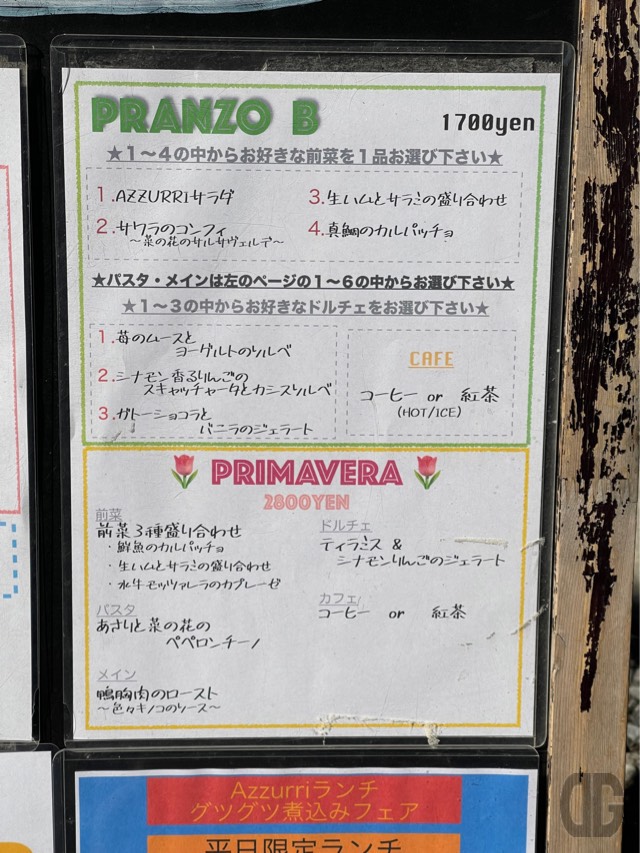 PRANZO B
1700yen
★1〜4の中からお好きな前菜を1品お選び下さい★
1.AZZURRIサラダ
2.サワラのコンフィ
〜菜の花のサルサヴェルデ〜
3.生ハムとサラミの盛り合わせ
4.真鯛のカルパッチョ
★パスタ・メインは左のページの1〜6の中からお選び下さい★
★1〜3の中からお好きなドルチェをお選び下さい★
1.苺のムースと
ヨーグルトのソルベ
2.シナモン香るりんごの
スキャッチャータとカシスソルベ
3.ガトーショコラと
バニラのジェラート
CAFE
コーヒー or 紅茶
(HOT/ICE)
PRIMAVERA
2800YEN
前菜
前菜3種盛り合わせ
・鮮魚のカルパッチョ
・生ハムとサラミの盛り合わせ
・水牛モッツァレラのカプレーゼ
パスタ
あさりと菜の花の
ペペロンチーノ
メイン
鴨胸肉のロースト
〜色々キノコのソース〜
ドルチェ
ティラミス &
シナモンりんごのジェラート
カフェ
コーヒー or 紅茶
Azzurriランチ
グツグツ煮込みフェア
平日限定ランチ
DG